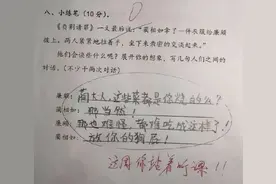 八、小练笔（10分）。
《负荆请罪》一文最后说："蔺相如拿了一件衣服给廉颇
披上，两人紧紧地拉着手，坐下来亲密的交谈起来。"
他们会谈些什么呢？展开你的想象，写几句人们之间的
对话。（不少于两次对话）
廉颇：蔺大人，这些菜都是你烧的么？
蔺相如：那当然！
廉颇：那也难怪，都难吃成这样了！
蔺相如：放你的狗屁！
这周你站着听课！！